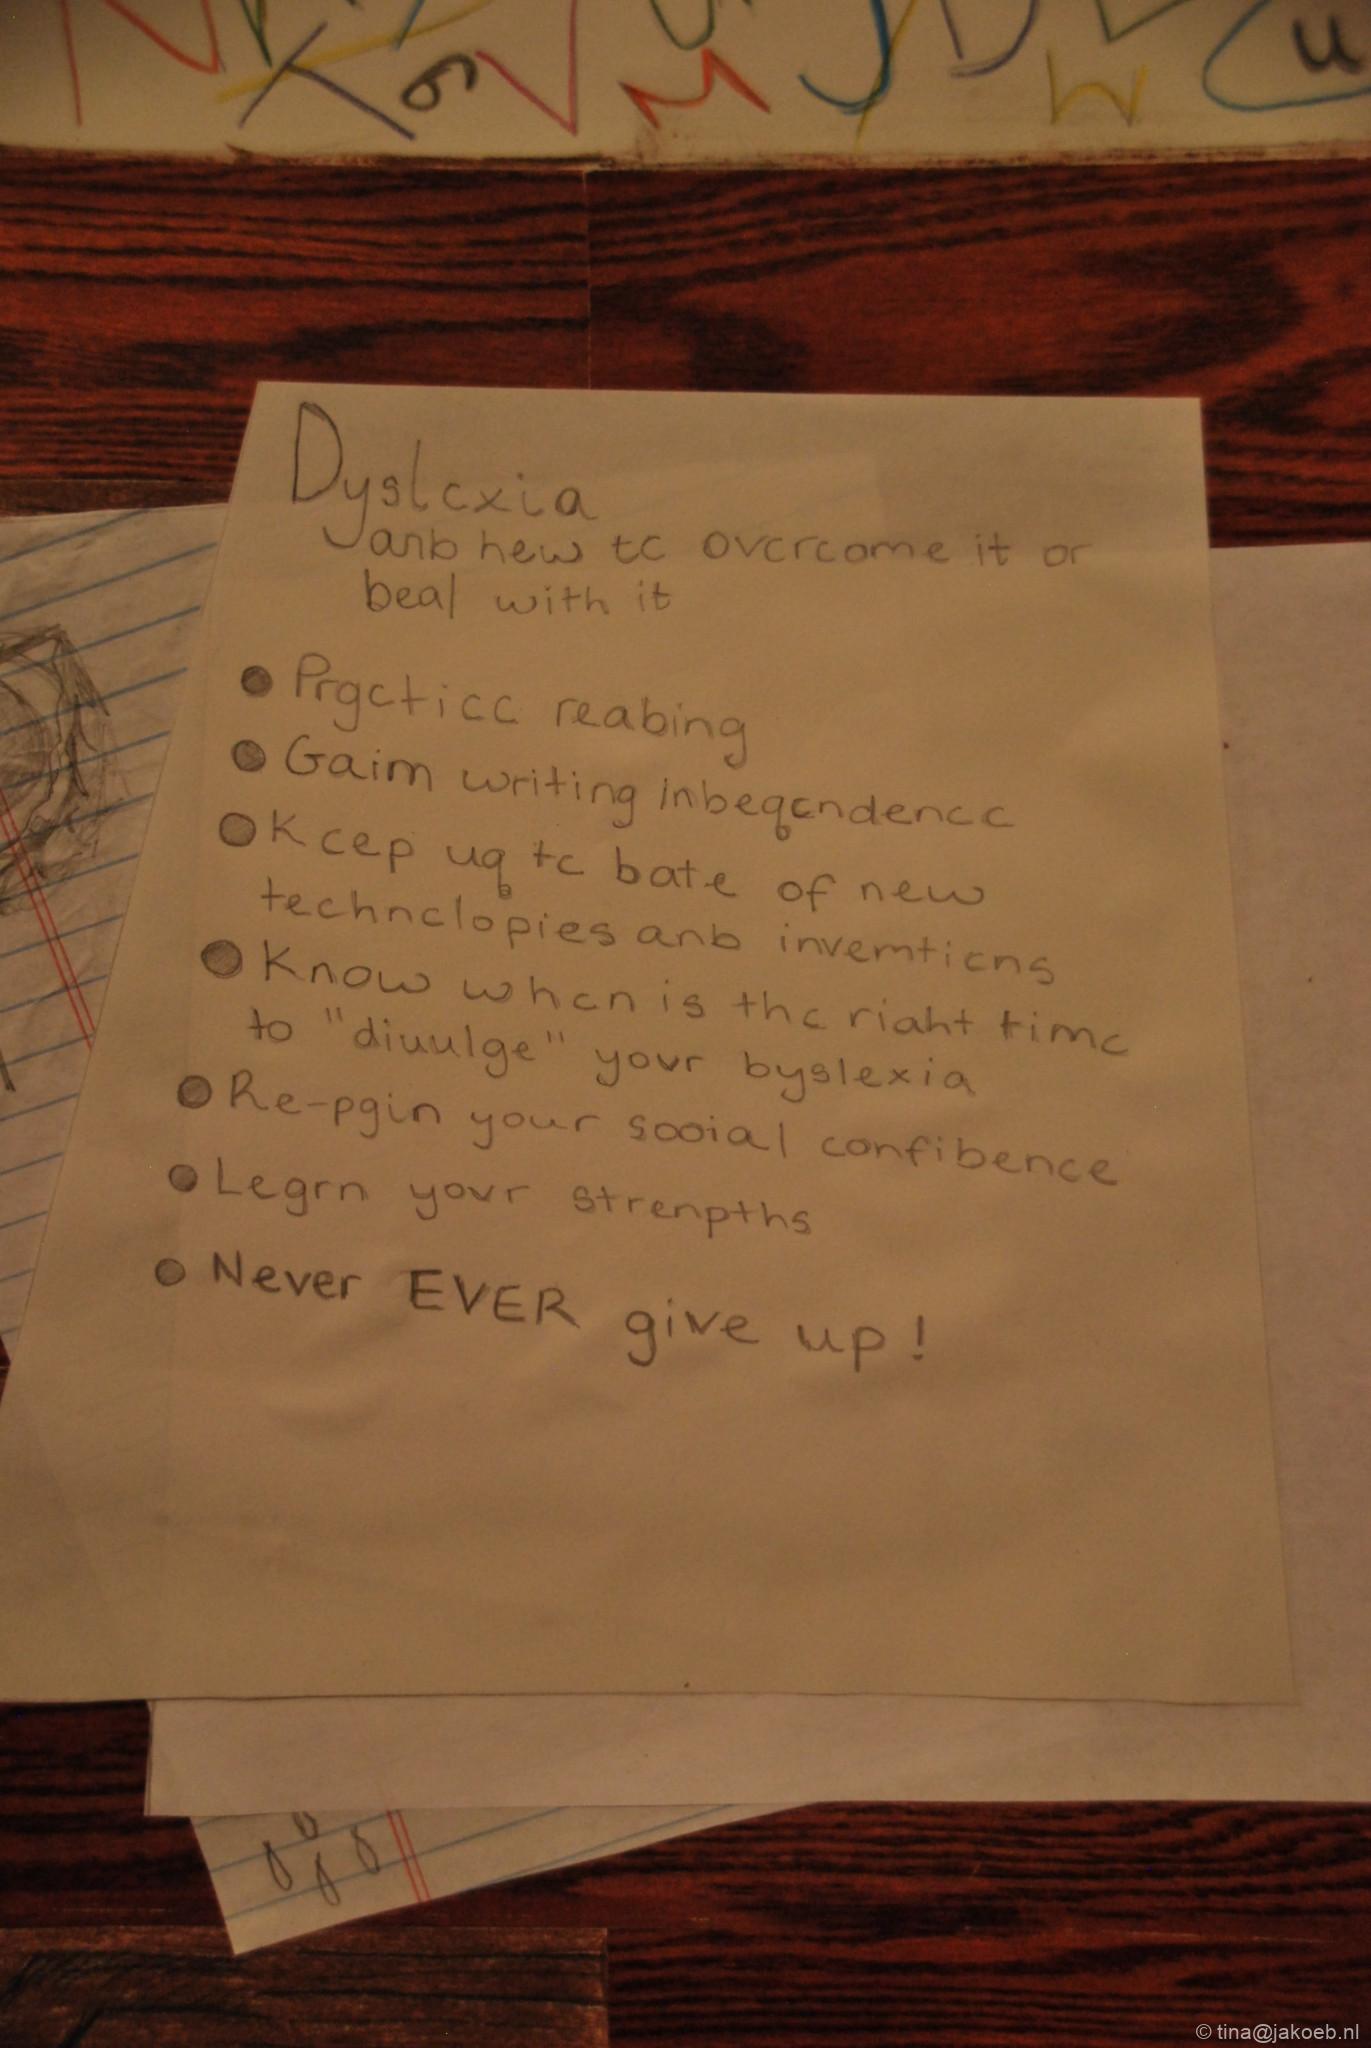 N K 6 V M J D W u
Dyslcxia
anb hew tc ovcrcome it or
beal with it
Prgcticc reabing
Gaim writing inbeqcndencc
Kcep uq tc bate of new
technclopies anb invemticns
Know whcn is thc riaht timc
to "diuulge" yovr byslexia
Re-pgin your sooial confibence
Legrn yovr strenpths
Never EVER give up!
© tina@jakoeb.nl